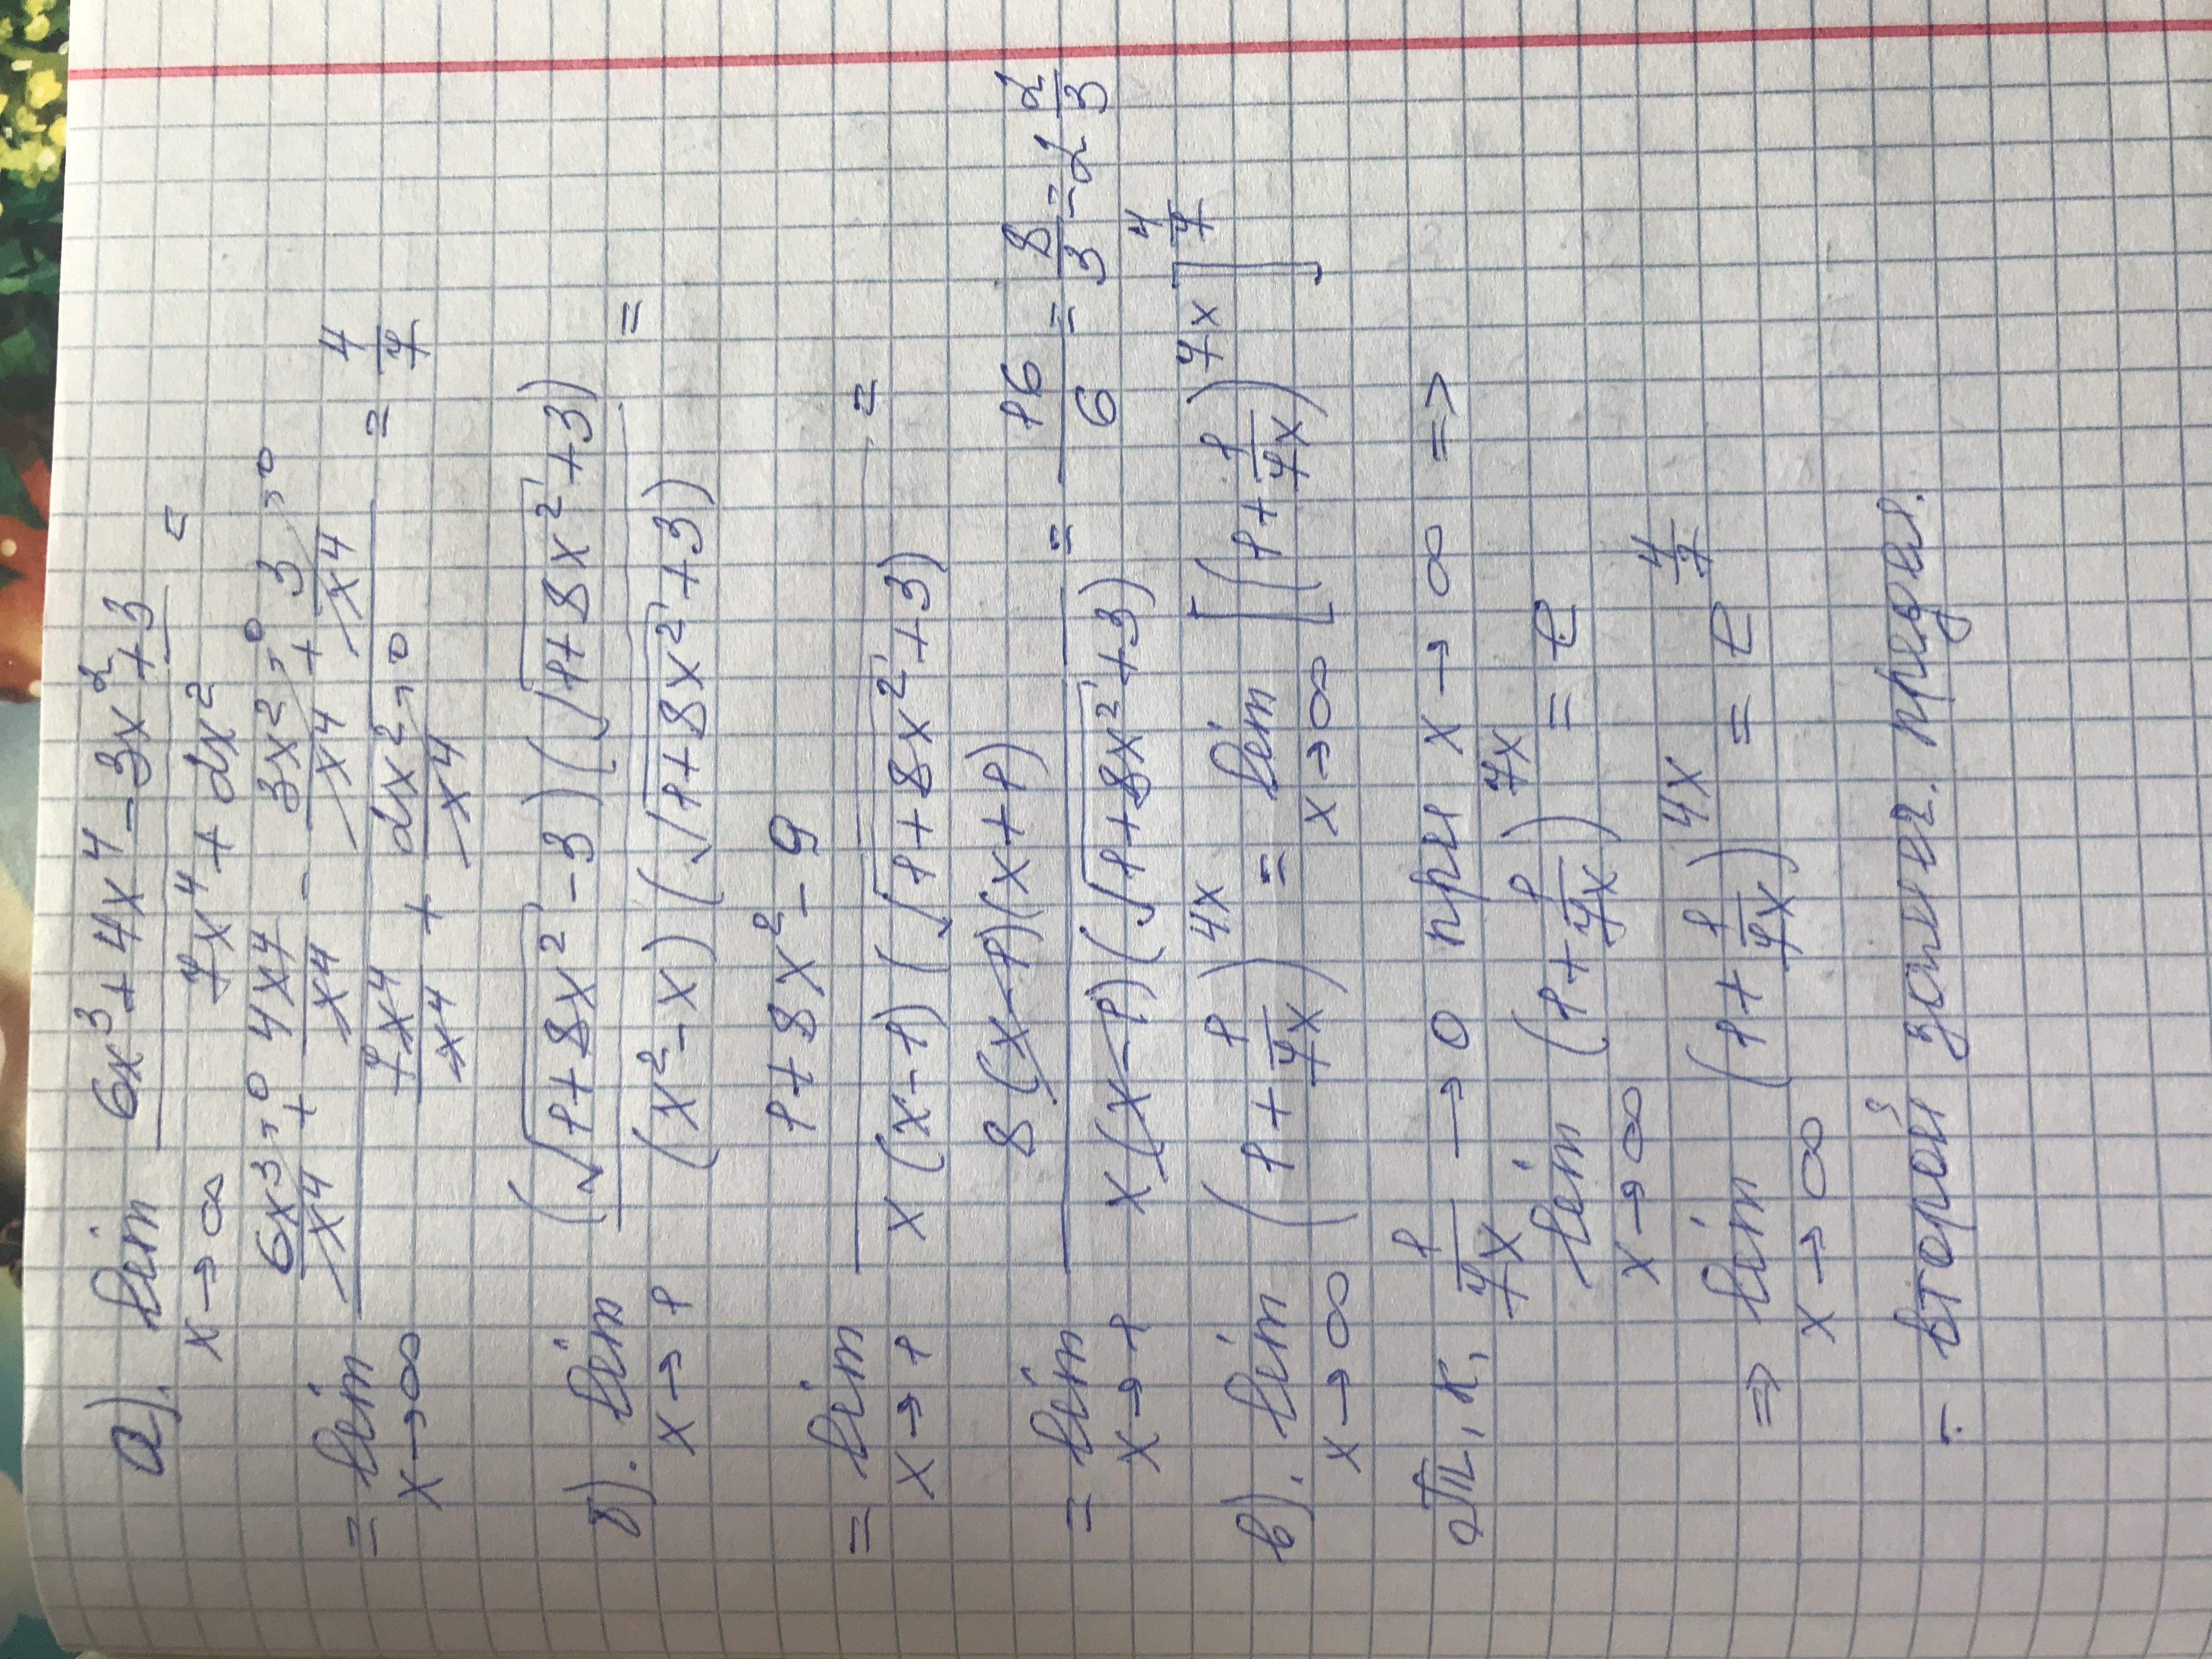 а). lim (6x³ + 4x⁴ - 3x² + 3)/(7x⁴ + 2x²) =
x→∞
= lim (6x³/x⁴ →0 + 4x⁴/x⁴ - 3x²/x⁴ →0 + 3/x⁴ →0)/(7x⁴/x⁴ + 2x²/x⁴ →0) = 4/7
x→∞
б). lim ((√(1+8x²) - 3)(√(1+8x²) + 3))/((x² - x)(√(1+8x²) + 3)) =
x→1
= lim (1 + 8x² - 9)/(x(x-1)(√(1+8x²) + 3)) =
x→1
= lim (8(x-1)(x+1))/(x(x-1)(√(1+8x²) + 3)) = 16/6 = 8/3 = 2 2/3
x→1
в). lim (1 + 1/7x)^4x = lim [(1 + 1/7x)^7x]^4/7
x→∞ x→∞
т.к. 1/7x → 0 при x → ∞ =>
lim (1 + 1/7x)^7x = e
x→∞
=> lim (1 + 1/7x)^4x = e^4/7
x→∞
- второй замеч. предел.